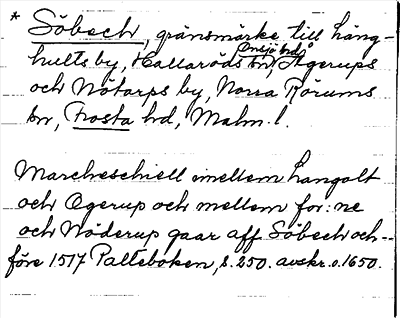 * Söbech, gränsmärke till Lång-
hults by, Hallaröds sn, Onsjö hd, Ågerups
och Nötarps by, Norra Rörums
sn, Frosta hd, Malm. l.
Marcheschiell mellem Langolt
och Ogerup och mellem for:ne
och Nöderup gaar aff Söbech och--
före 1517 Palteboken, s. 250. avskr. o. 1650.